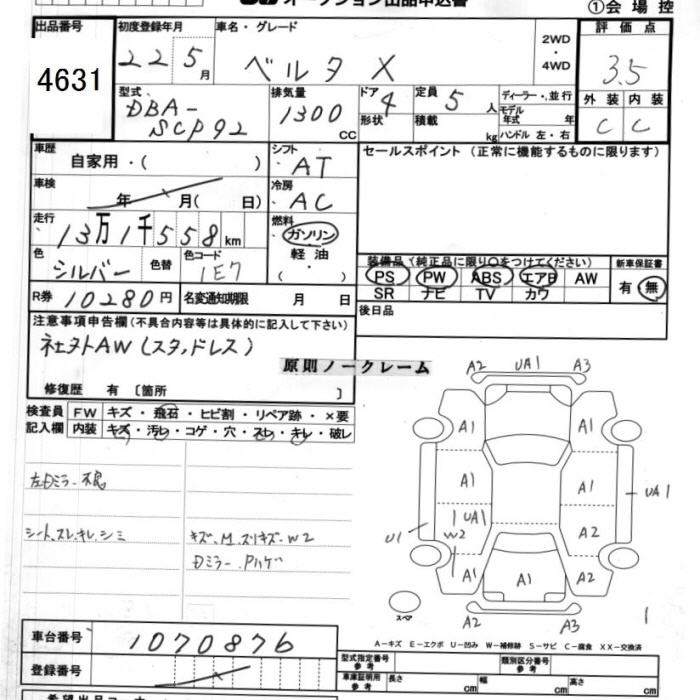 オークション出品申込書
①会場控
出品番号
4631
初度登録年月
22 5月
車名・グレード
ベルタ X
2WD
・
4WD
評価点
3.5
外装 内装
C C
型式
DBA-
SCP92
排気量
1300 cc
ドア 4
形状
定員 5 人
積載 kg
ディーラー・並行
モデル
年式 年
ハンドル 左・右
車歴
自家用・( )
シフト
AT
セールスポイント (正常に機能するものに限ります)
車検
年 月( 日)
冷房
AC
走行
13万1千558km
燃料
ガソリン
軽油
・( )
色
シルバー
色替
色コード
1E7
装備品 (純正品に限り○をつけてください)
PS PW ABS エアB AW
SR ナビ TV カワ
新車保証書
有・無
R券 10280円
名変通知期限 月 日
後日品
注意事項申告欄(不具合内容等は具体的に記入して下さい)
社外AW(スタッドレス)
原則ノークレーム
修復歴 有 〔箇所 〕
検査員
記入欄
FW キズ・飛石・ヒビ割・リペア跡・×要
内装 キズ・汚レ・コゲ・穴・スレ・キレ・破レ
左Dミラー不良
シート、スレ、キレ、シミ
キズ、M、スリキズ、W2
Dミラー、Pハゲ
A2 UA1 A3
A1 A1
A1 A1 UA1
UA1 A2
U1 W2
A1 A2
A2 A3
スペア
1
車台番号
1070876
A-キズ E-エクボ U-凹み W-補修跡 S-サビ C-腐食 XX-交換済
登録番号
型式指定番号
参考
類別区分番号
参考
車庫証明用
参考
長さ cm 幅 cm 高さ cm